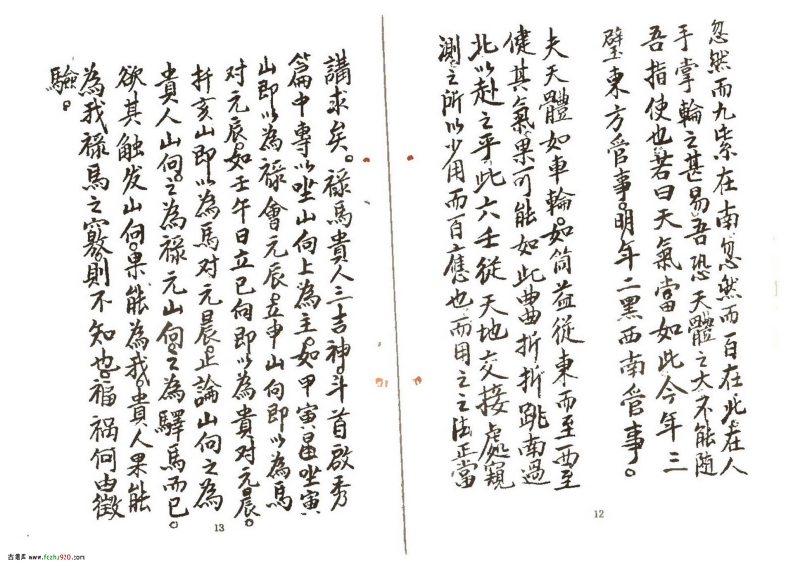 忽然而九紫在南忽然而百在北在人
手掌輪之甚易吾恐天體之大不能随
吾指使也若曰天氣當如此今年三
壁東方管事。明年二黑西南管事。
夫天體如車輪。如筒益從東而至西至
健其氣果可能如此曲折折跳南過
北以赴之乎此六壬從天地交接處窺
測之所以少用而百應也而用之之法正當
12
講求矣。禄馬貴人三吉神。斗首啟秀
篇中專以坐山向上為主。如甲寅昌坐寅
山即以為禄會元辰。立申山向即以為馬
对元辰。如壬午日立巳向即以為貴对元晨。
扦亥山即以為馬对元晨。止論山向之為
貴人山向。之為禄元山向。之為驛馬而已。
欲其触发山向。果能為我。貴人果能
為我禄馬之竅則不知也。福禍何由徵
驗。
13
古籍库 www.fczhu920.com